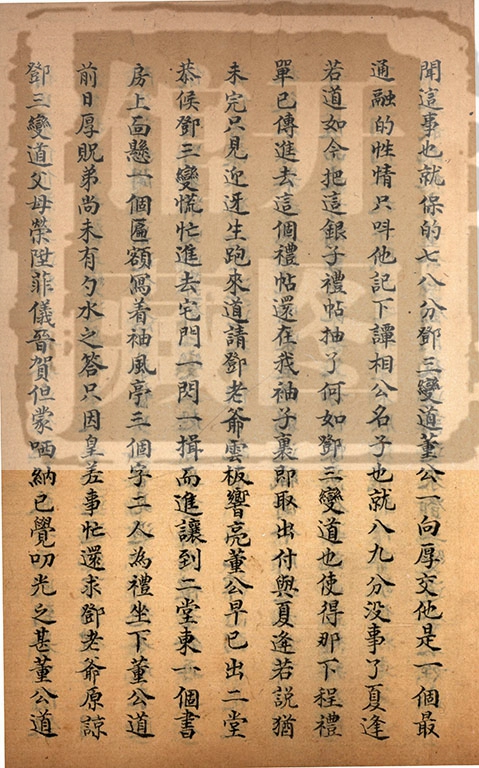 聞這事也就保的七八分鄧三變道董公一向厚交他是一個最
通融的性情只呌他記下譚相公名子也就八九分没事了夏逢
若道如今把這銀子禮帖抽了何如鄧三變道也使得那下程禮
單已傳進去這個禮帖還在我袖子裏即取出付與夏逢若説猶
未完只見迎迓生跑來道請鄧老爺雲板響亮董公早已出二堂
恭候鄧三變慌忙進去宅門一閃一揖而進讓到二堂東一個書
房上面懸一個匾額寫着袖風亭三個字二人為禮坐下董公道
前日厚貺弟尚未有勺水之答只因皇差事忙還求鄧老爺原諒
鄧三變道父母榮陞菲儀晉賀但蒙哂納已覺叨光之甚董公道